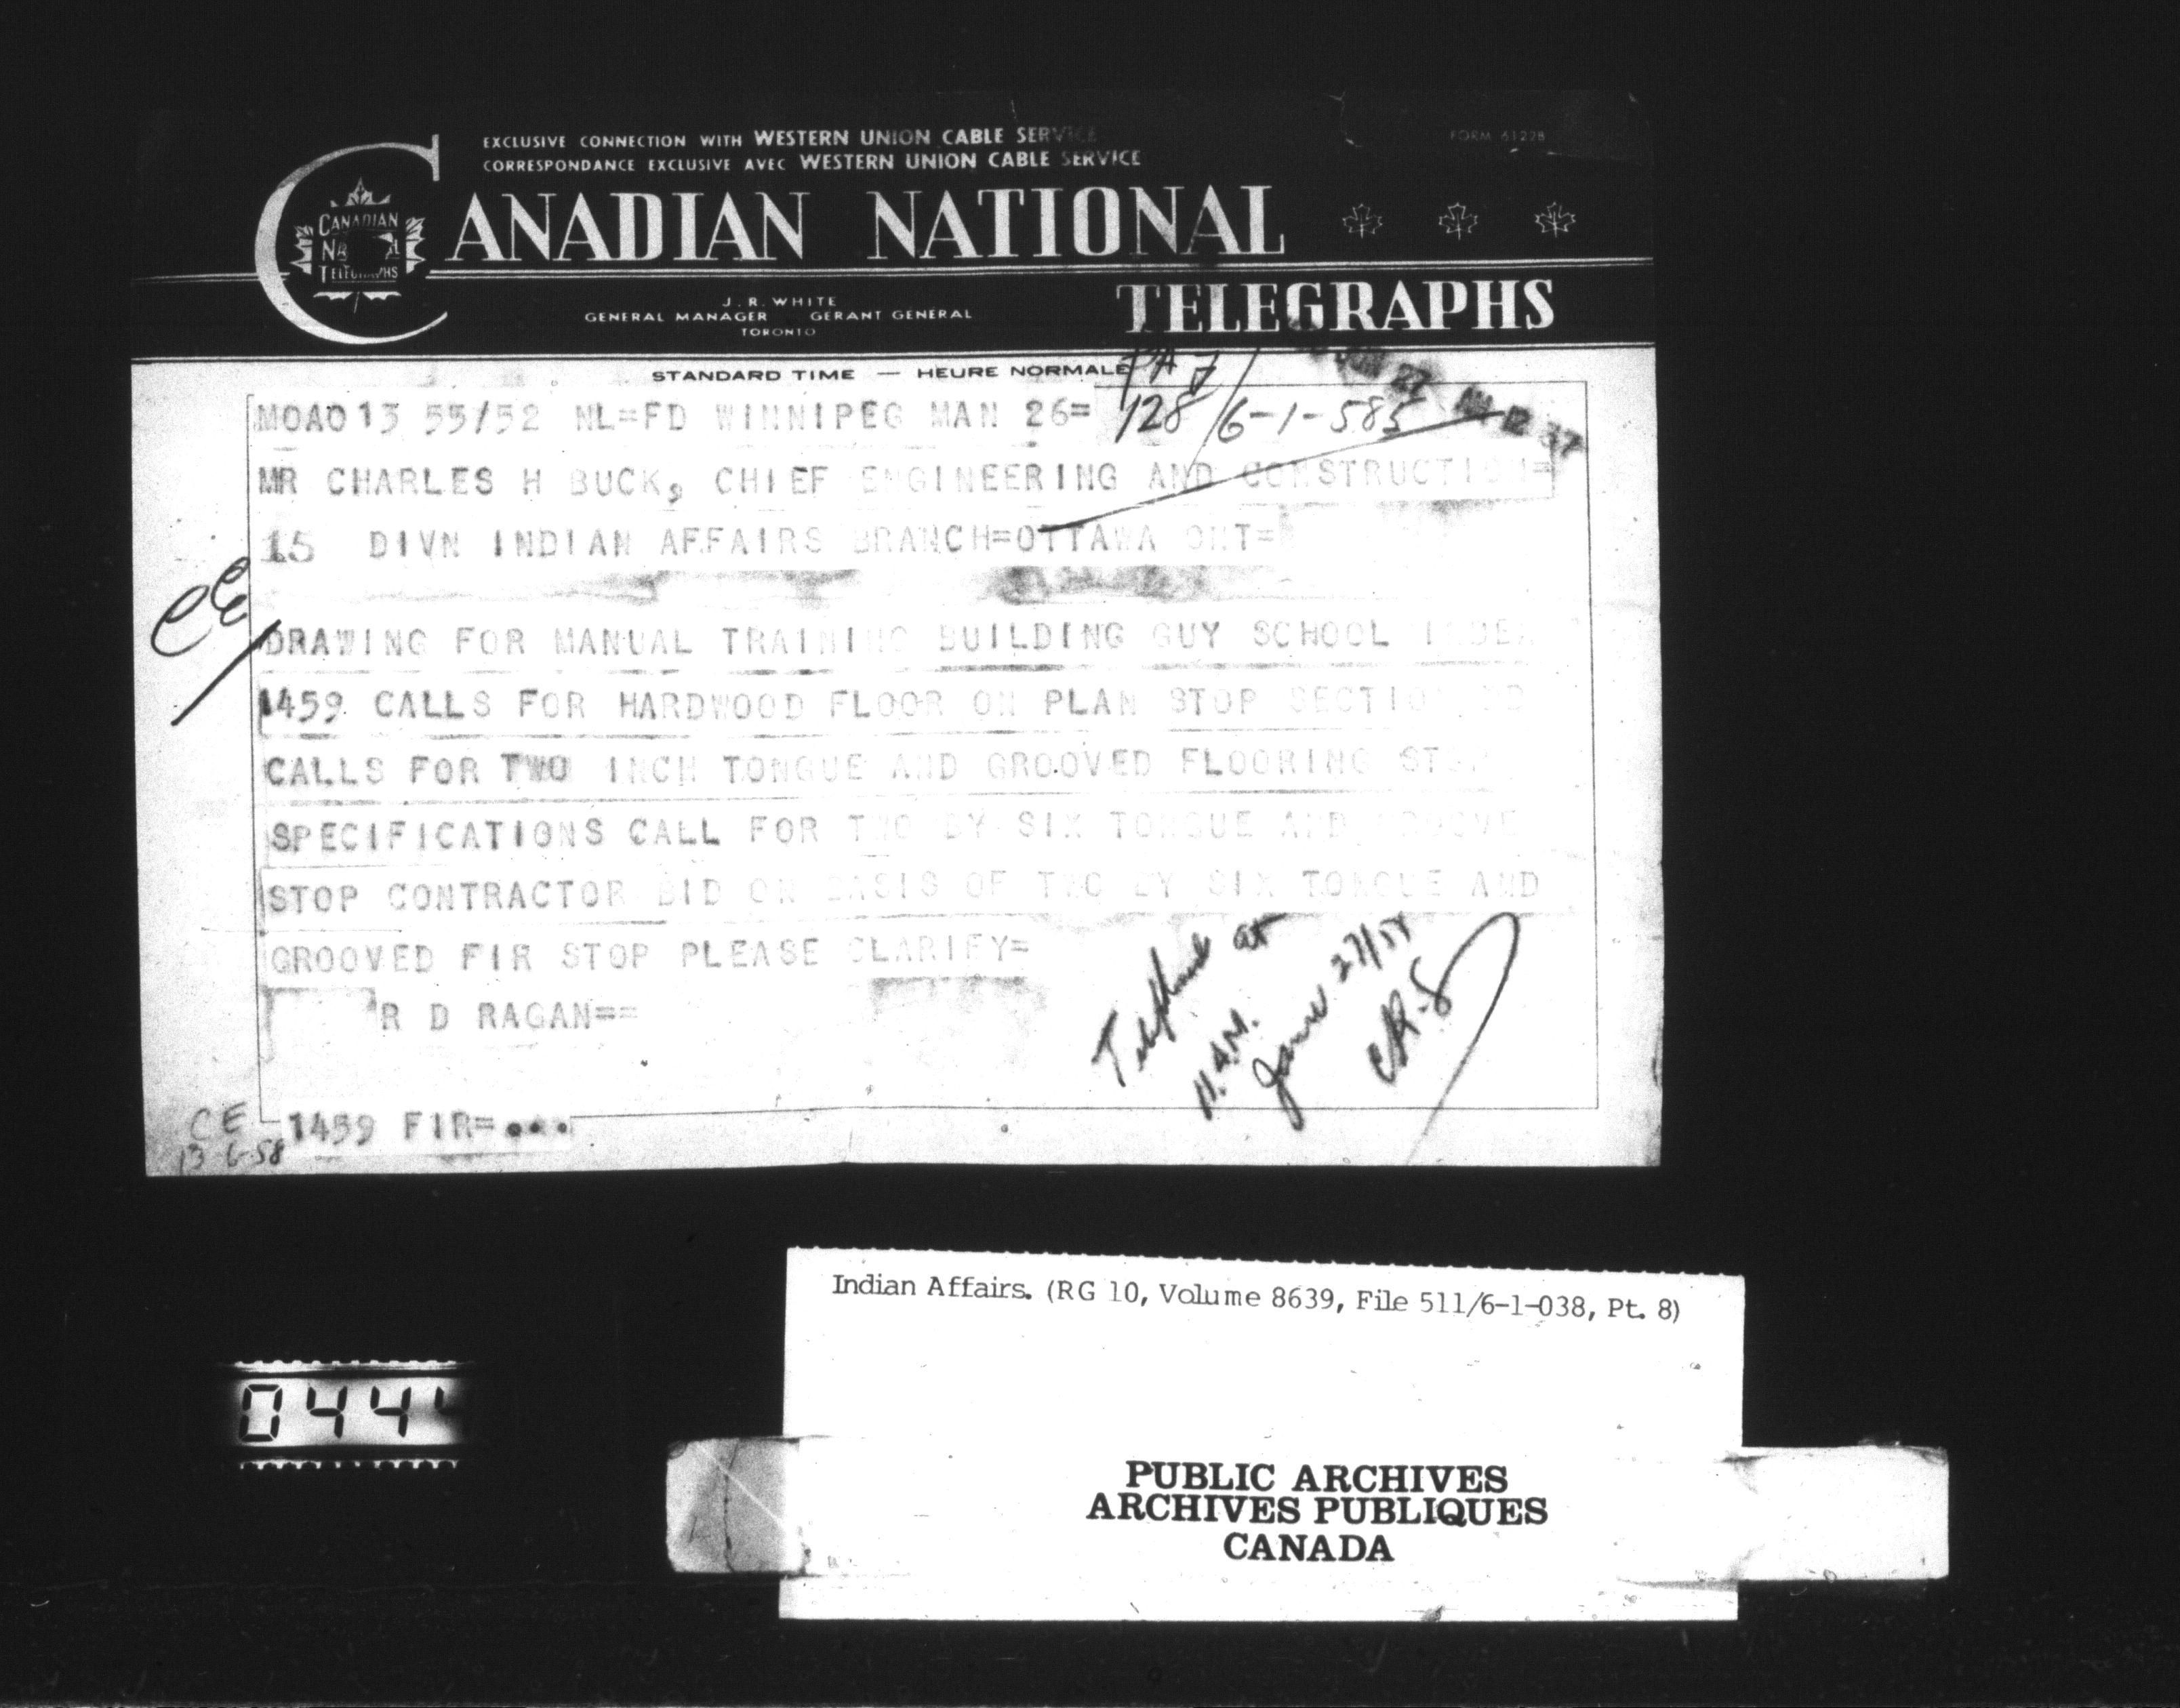 EXCLUSIVE CONNECTION WITH WESTERN UNION CABLE SERVICE
CORRESPONDANCE EXCLUSIVE AVEC WESTERN UNION CABLE SERVICE
FORM 6122B
CANADIAN NATIONAL
TELEGRAPHS
CANADIAN
TELEGRAPHS
J. R. WHITE
GENERAL MANAGER GERANT GENERAL
TORONTO
STANDARD TIME — HEURE NORMALE
MOAO13 55/52 NL=FD WINNIPEG MAN 26= 128/6-1-585
MR CHARLES H BUCK, CHIEF ENGINEERING AND CONSTRUCTION=
15 DIVN INDIAN AFFAIRS BRANCH=OTTAWA ONT=
DRAWING FOR MANUAL TRAINING BUILDING GUY SCHOOL
1459 CALLS FOR HARDWOOD FLOOR ON PLAN STOP SECTION
CALLS FOR TWO INCH TONGUE AND GROOVED FLOORING STOP
SPECIFICATIONS CALL FOR TWO BY SIX TONGUE AND GROOVE
STOP CONTRACTOR BID ON BASIS OF TWO BY SIX TONGUE AND
GROOVED FIR STOP PLEASE CLARIFY=
R D RAGAN==
Telephoned at
11. A.M.
June 27/58
CE
13-6-58
1459 FIR=...
044
Indian Affairs. (RG 10, Volume 8639, File 511/6-1-038, Pt. 8)
PUBLIC ARCHIVES
ARCHIVES PUBLIQUES
CANADA